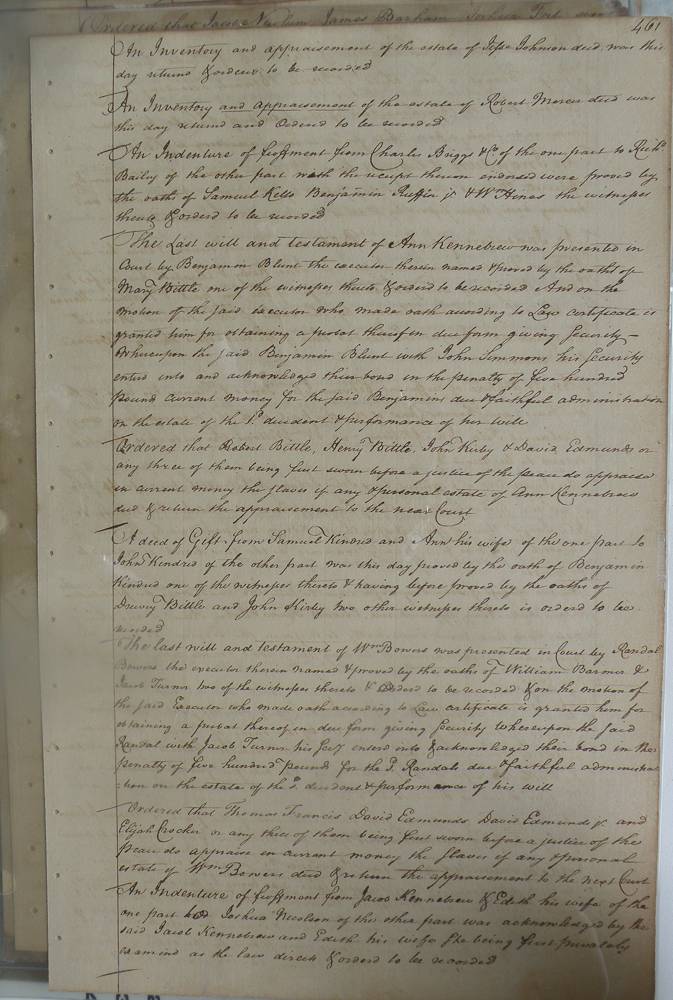 Ordered that James Barham Joshua
461
An Inventory and appraisement of the estate of Jesse Johnson decd was this
day returnd & orderd to be recorded
An Inventory and appraisement of the estate of Robert Mercer decd was
this day returnd and Orderd to be recorded
An Indenture of feoffment from Charles Briggs & Co of the one part to Richd
Bailey of the other part with the receipt thereon endorsed were proved by
the oaths of Samuel Kello Benjamin Ruffin jr & Wm Hines the witnesses
thereto & orderd to be recorded
The Last will and testament of Ann Kennebrew was presented in
Court by Benjamin Blunt the executor therein named & proved by the oaths of
Mary Bittle one of the witnesses thereto & orderd to be recorded And on the
motion of the said executor who made oath according to Law certificate is
granted him for obtaining a probat thereof in due form giving security –
Whereupon the said Benjamin Blunt with John Simmons his Security
enterd into and acknowledged their bond in the penalty of five hundred
pound current money for the said Benjamins due & faithful administration
on the estate of the sd. decedent & performance of her will
Ordered that Robert Bittle, Henry Bittle, John Kirby & David Edmunds or
any three of them being first sworn before a justice of the peace do appraise
in current money the slaves if any & personal estate of Ann Kennebrew
decd & return the appraisement to the next Court
A deed of Gift from Samuel Kindred and Ann his wife of the one part to
John Kindred of the other part was this day proved by the oath of Benjamin
Kindred one of the witnesses thereto & having before proved by the oaths of
Drewry Bittle and John Kirby two other witnesses thereto is orderd to be
recorded
The last will and testament of Wm Bowers was presented in Court by Randal
Bowers the executor therein named & proved by the oaths of William Barmer &
Jacob Turner two of the witnesses thereto & orderd to be recorded & on the motion of
the said Executor who made oath according to Law certificate is granted him for
obtaining a probat thereof in due form giving security Whereupon the said
Randal with Jacob Turner his secy enterd into & acknowledged their bond in the
penalty of five hundred pounds for the sd. Randals due & faithful administra
-tion on the estate of the sd. decedent & performance of his will
Ordered that Thomas Francis David Edmunds David Edmunds jr. and
Elijah Crocker or any three of them being first sworn before a justice of the
peace do appraise in current money the slaves if any & personal
estate of Wm Bowers decd & return the appraisement to the next Court
An Indenture of feoffment from Jacob Kennebrew & Edith his wife of the
one part to Joshua Nicolson of the other part was acknowledged by the
said Jacob Kennebrew and Edith his wife she being first privately
examined as the law directs & orderd to be recorded